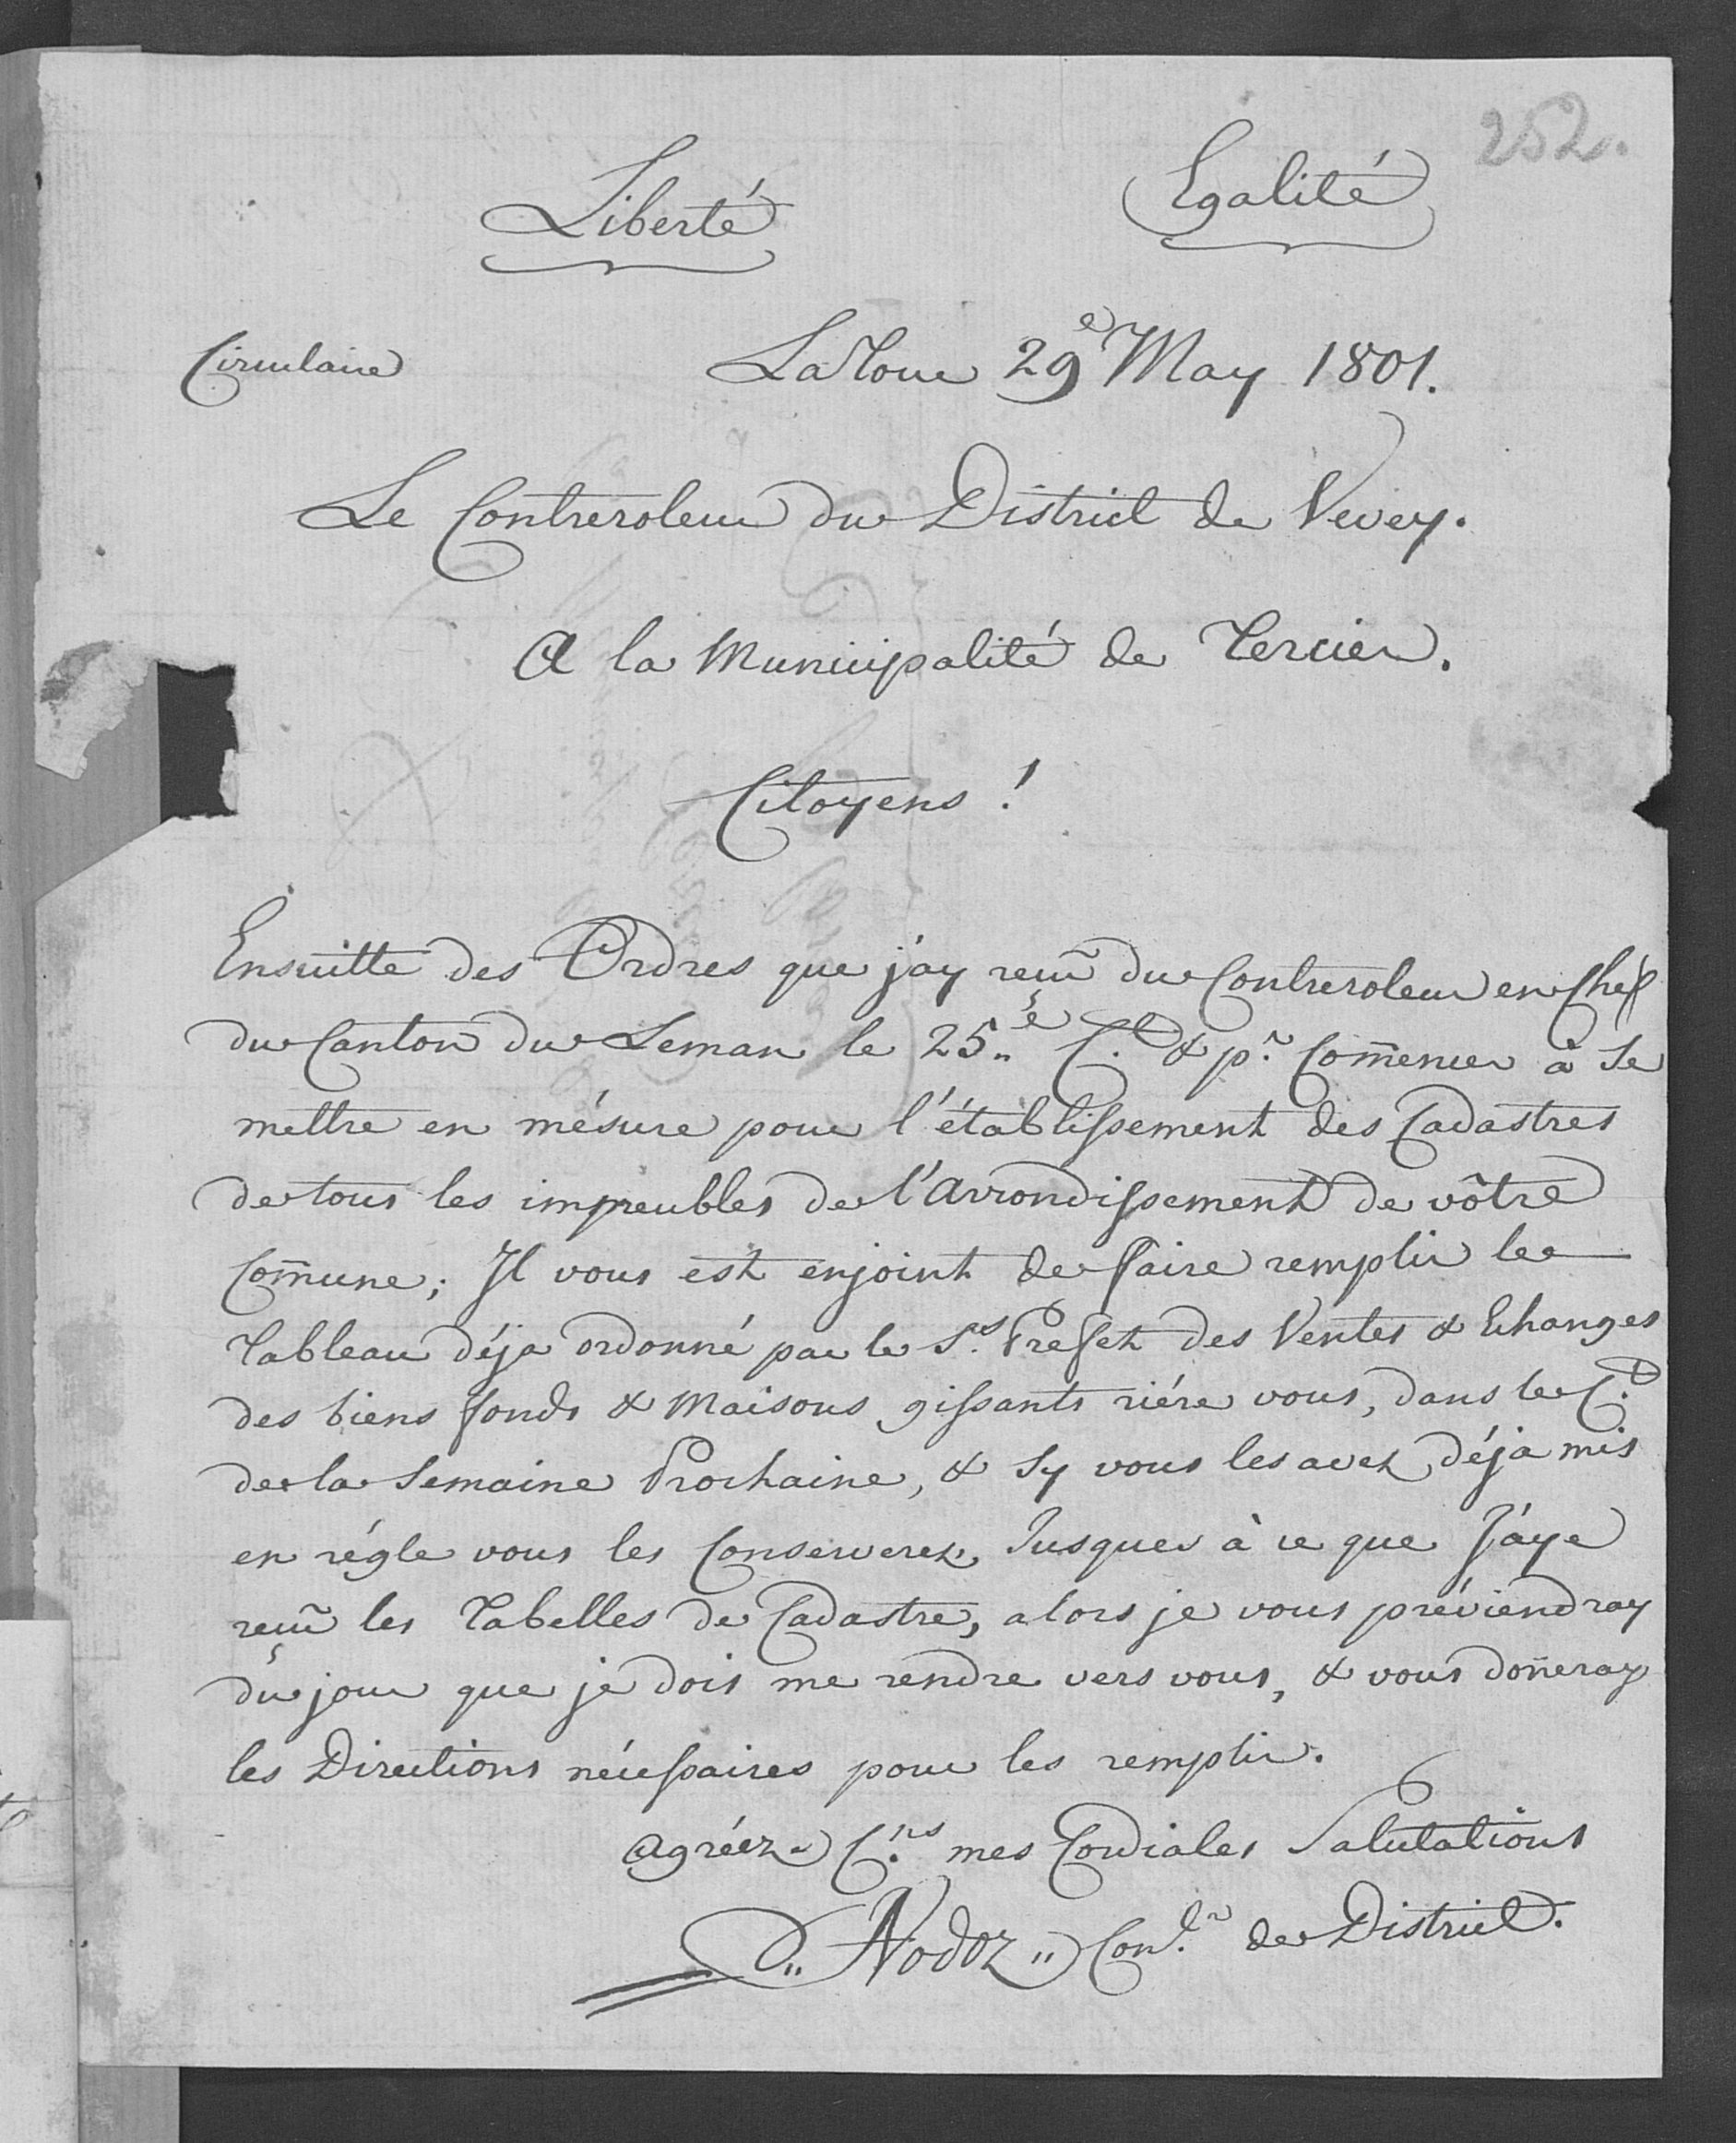 252.
Liberté Egalité
Circulaire LaTour 29e May 1801.
Le Contreroleur du District de Vevey.
A la Municipalité de Tercier.
Citoyens !
Ensuitte des Ordres que j'ay reçu du Contreroleur en Chef
du Canton du Leman le 25e Ct & pr Comencer à se
mettre en mésure pour l'établissement des Cadastres
de tous les immeubles de l'Arrondissement de vôtre
Comune; Il vous est enjoint de faire remplir le
Tableau déja ordonné par le Ss Prefet des Ventes & Echanges
des biens fonds & Maisons gissants riére vous, dans le Ct
de la Semaine Prochaine, & Sy vous les avez déja mis
en régle vous les Conserverez, Jusques à ce que J'aye
reçu les Tabelles de Cadastre, alors je vous préviendray
du jour que je dois me rendre vers vous, & vous doneray
les Directions nécessaires pour les remplir.
Agréez Cns mes Cordiales Salutations
D„ Nodoz „ Conlr de District.